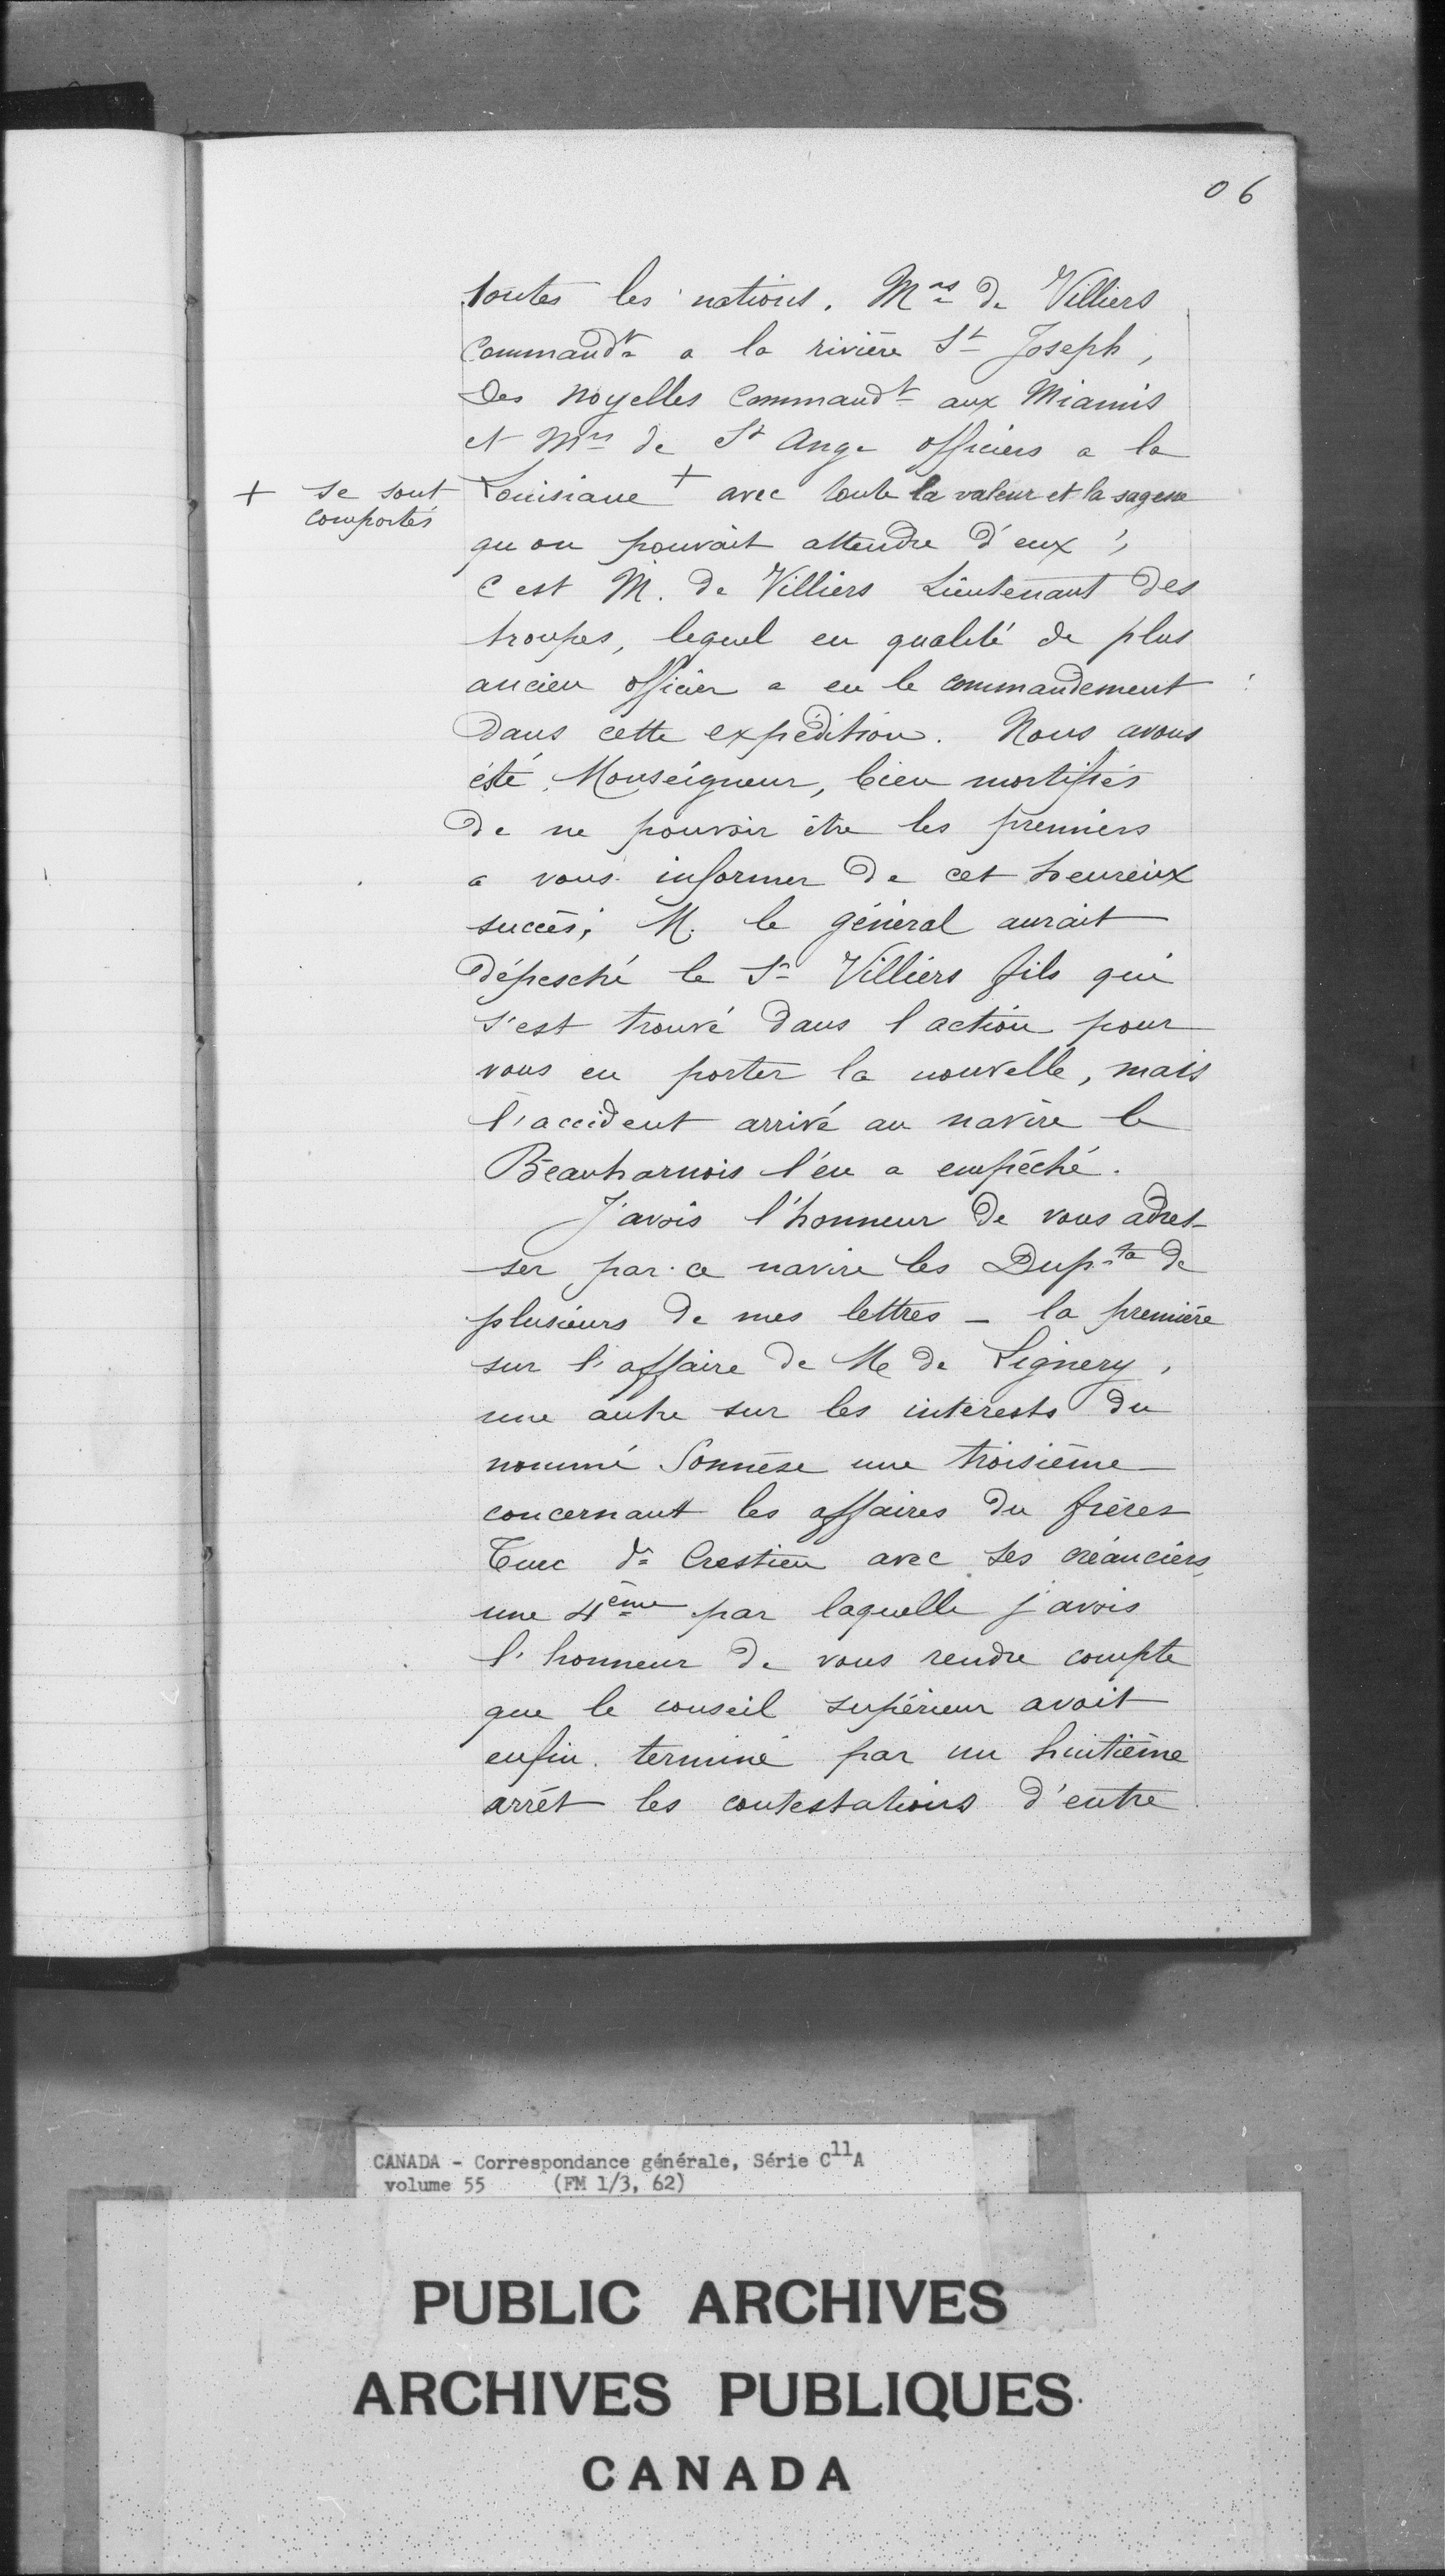 06
toutes les nations. Mrs de Villiers
Commandt a la rivière St Joseph,
Des Noyelles Commandt aux Miamis
et Mrs de St Ange officiers a la
+ se sont comportés
Louisiane + avec toute la valeur et la sagesse
qu on pouvait attendre d'eux ;
c est M. de Villiers Lieutenant des
troupes, lequel en qualité de plus
ancien officier a eu le commandement
dans cette expédition. Nous avons
été, Monseigneur, bien mortifiés
de ne pouvoir être les premiers
a vous informer de cet heureux
succès; M. le général aurait
dépesché le Sr Villiers fils qui
s'est trouvé dans l action pour
vous en porter la nouvelle, mais
l'accident arrivé au navire le
Beauharnois l'en a empéché.
J'avois l'honneur de vous adres-
ser par ce navire les Dupta de
plusieurs de mes lettres - la première
sur l'affaire de Mr de Lignery,
une autre sur les interests du
nommé une troisième
concernant les affaires du frères
Turc dt Crestien avec ses créanciers,
une 4ème par laquelle j'avois
l'honneur de vous rendre compte
que le conseil supérieur avoit
enfin terminé par un huitième
arrét les contestations d'entre
CANADA - Correspondance générale, Série C11A
volume 55 (FM 1/3, 62)
PUBLIC ARCHIVES
ARCHIVES PUBLIQUES
CANADA